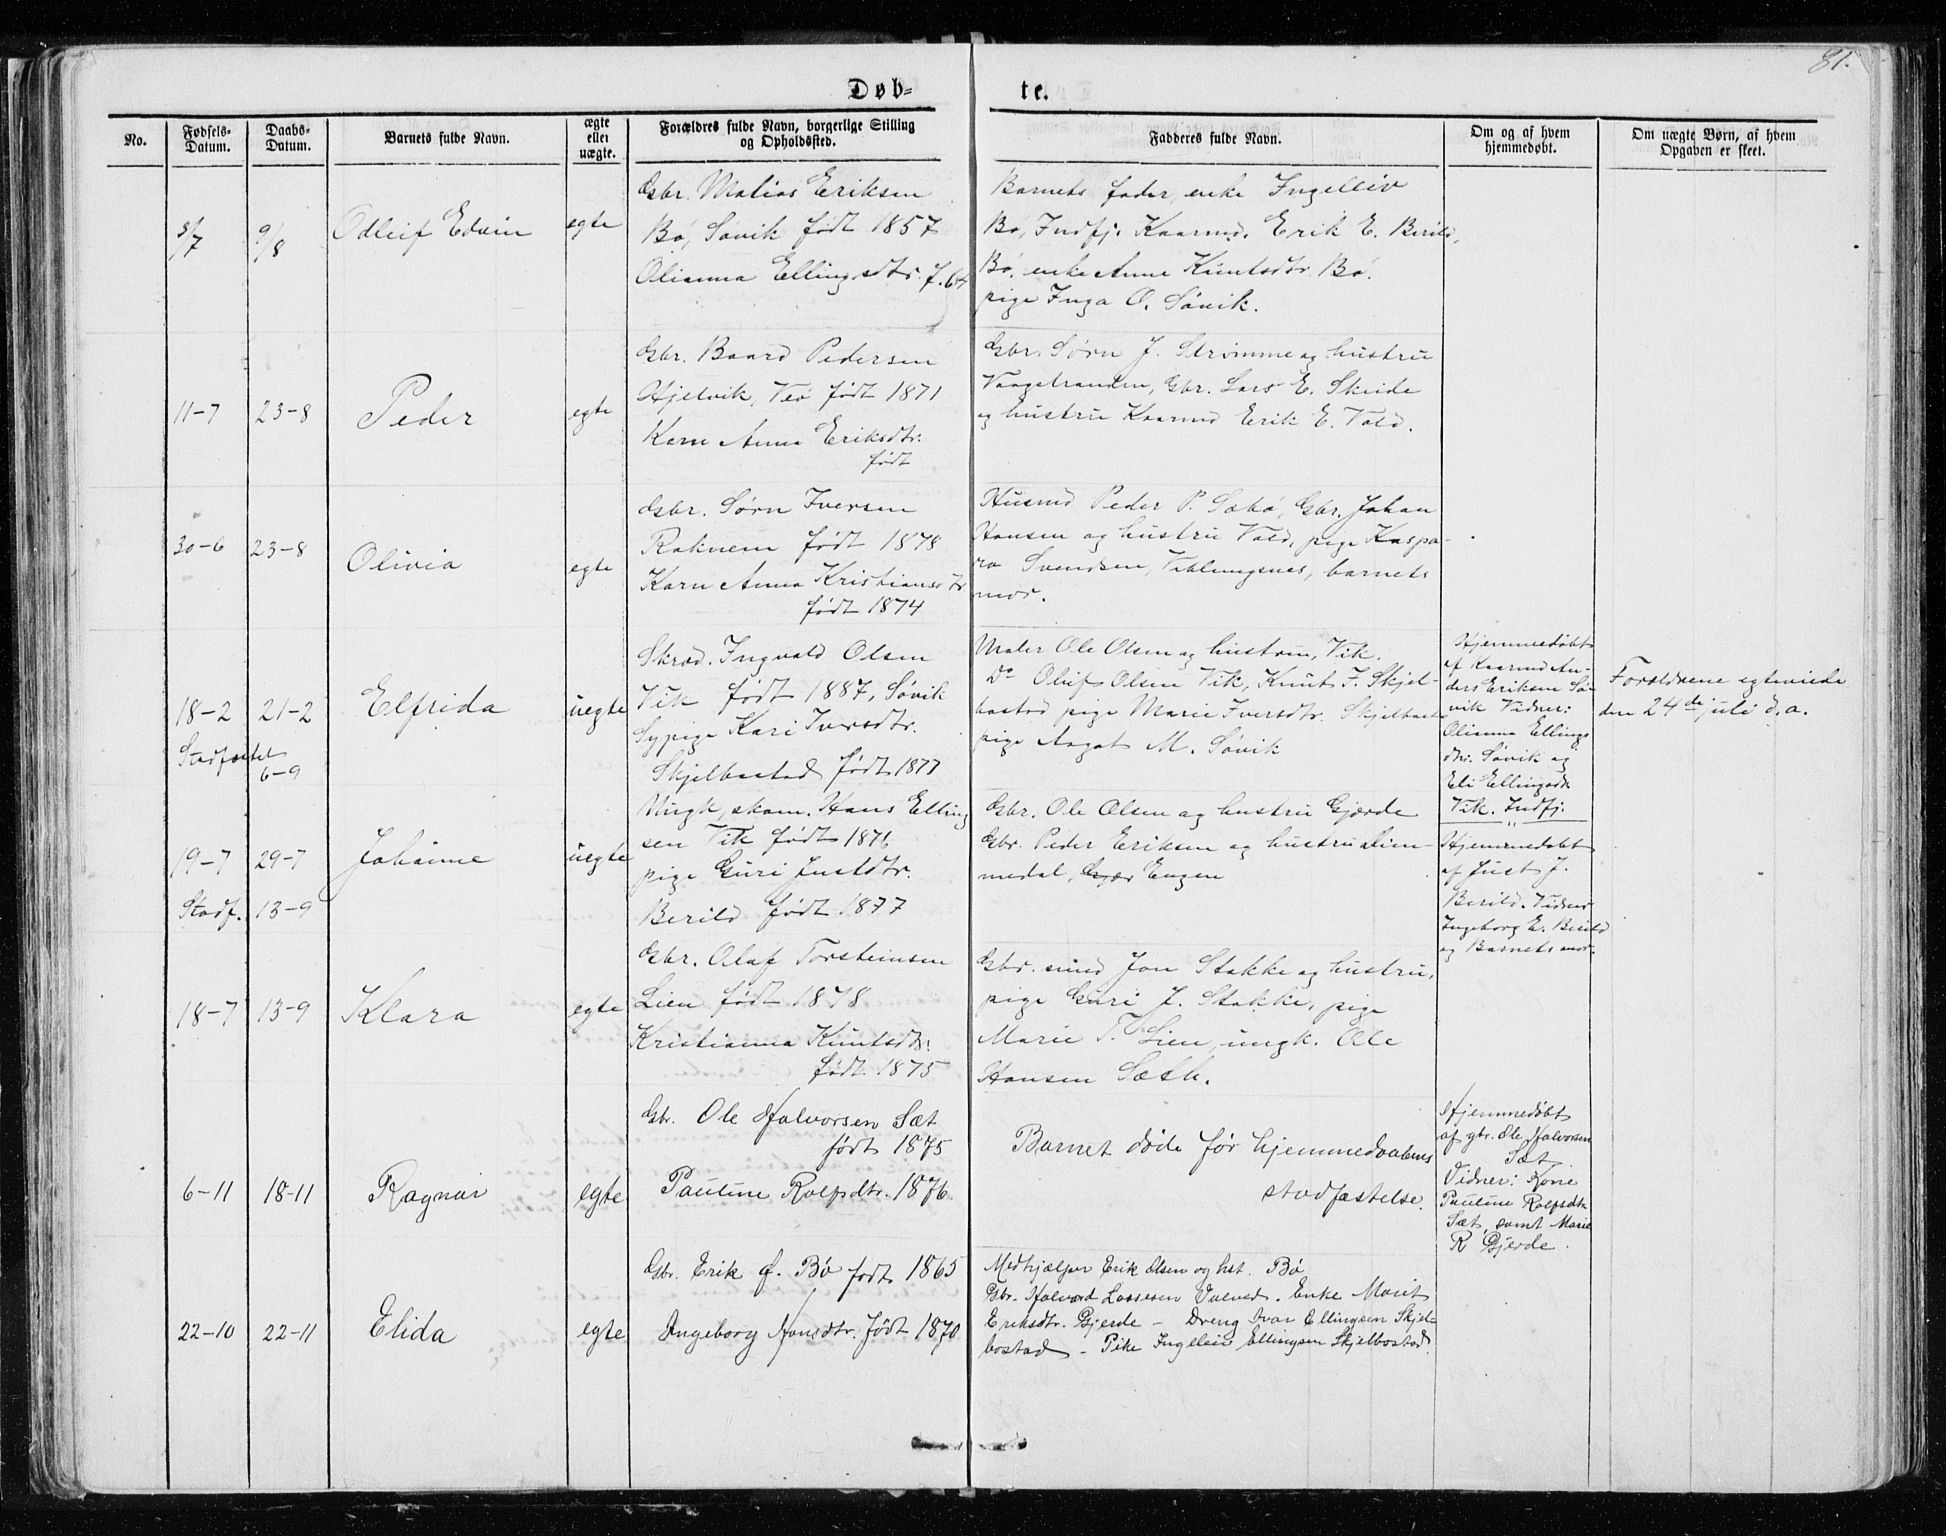 81.
Døb=
te.
No.
Fødsels-
Datum.
Daabs-
Datum.
Barnets fulde Navn.
ægte
eller
uægte.
Forældres fulde Navn, borgerlige Stilling
og Opholdssted.
Fadderes fulde Navn.
Om og af hvem
hjemmedøbt.
Om uægte Børn, af hvem
Opgaven er skeet.
9/8
Odleif Edvin
egte
Gbr. Matias Eriksen
Bø, Søvik født 1857
Olianna Ellingsdtr. f. 64
Barnets fader, enke Ingeleiv
Bø, Indfj. Kaarmd. Erik E. Berild,
Bø. enke Anne Knutsdtr. Bø.
pige Inga O. Søvik.
11-7
23-8
Peder
egte
Gbr. Baard Pedersen
Hjelvik, Veø født 1871
Karn Anna Eriksdtr.
født
Gbr. Sørn J. Strømme og hustru
Vaagstranden, Gbr. Lars E. Skeide
og hustru Kaarmd Erik E. Vold.
30-6
23-8
Olivia
egte
Gbr. Sørn Iversen
Roknem født 1878
Karn Anna Kristiansdtr
født 1874
Husmd Peder P. Sæbø, Gbr. Johan
Hansen og hustru Vold, pige Kaspa-
ra Svendsen, Veblungsnes, barnets
mor.
18-2
21-2
Stadfæstet
6-9
Elfrida
uegte
Skræd. Ingvald Olsen
Vik født 1887, Søvik
Sypige Kari Iversdtr.
Skjelbostad født 1877
Maler Ole Olsen og hustru, Vik.
Do Oluf Olsen Vik, Knut I. Skjel-
bostad pige Marie Iversdtr. Skjelbostad
pige Aagot M. Søvik
Hjemmedøbt
af Kaarmd An-
ders Eriksen Sø-
vik Vidner:
Olianna Ellings
dtr. Søvik og
Eli Ellingsdtr
Vik. Indfj.
Forældrene egteviede
den 24de juli d.a.
19-7
29-7
Stadf.
13-9
Johanne
uegte
Ungk, skom. Hans Elling
sen Vik født 1876
pige Guri Justdtr.
Berild født 1877
Gbr. Ole Olsen og hustru Gjerde
Gbr. Peder Eriksen og hustru
medal, Engen
Hjemmedøbt
af Just J.
Berild. Vidner
Ingeborg E. Berild
og Barnets mor.
18-7
13-9
Klara
egte
Gbr. Olaf Torsteinsen
Lien født 1878
Kristianna Knutsdtr.
født 1875
Gbr. smed Jon Stokke og hustru,
pige Guri J. Stokke, pige
Marie T. Lien, ungk. Ole
Hansen Sæth.
6-11
18-11
Ragnar
egte
Gbr. Ole Halvorsen Sæt
født 1875
Pauline Rolfsdtr. 1876.
Barnet døde før hjemmedaabens
stadfæstelse.
Hjemmedøbt
af gbr. Ole Halvorsen
Sæt.
Vidner: Kone
Pauline Rolfsdtr
Sæt, samt Marie
R Gjerde.
22-10
22-11
Elida
egte
Gbr. Erik O. Bø født 1865
Ingeborg Hansdtr. født 1870
Medhjælper Erik Olsen og hst. Bø
Gbr. Halvard Lassesen. Enke Marit
Eriksdtr. Gjerde - Dreng Ivar Ellingsen Skjel-
bostad - Pike Ingeleiv Ellingsen Skjelbostad.